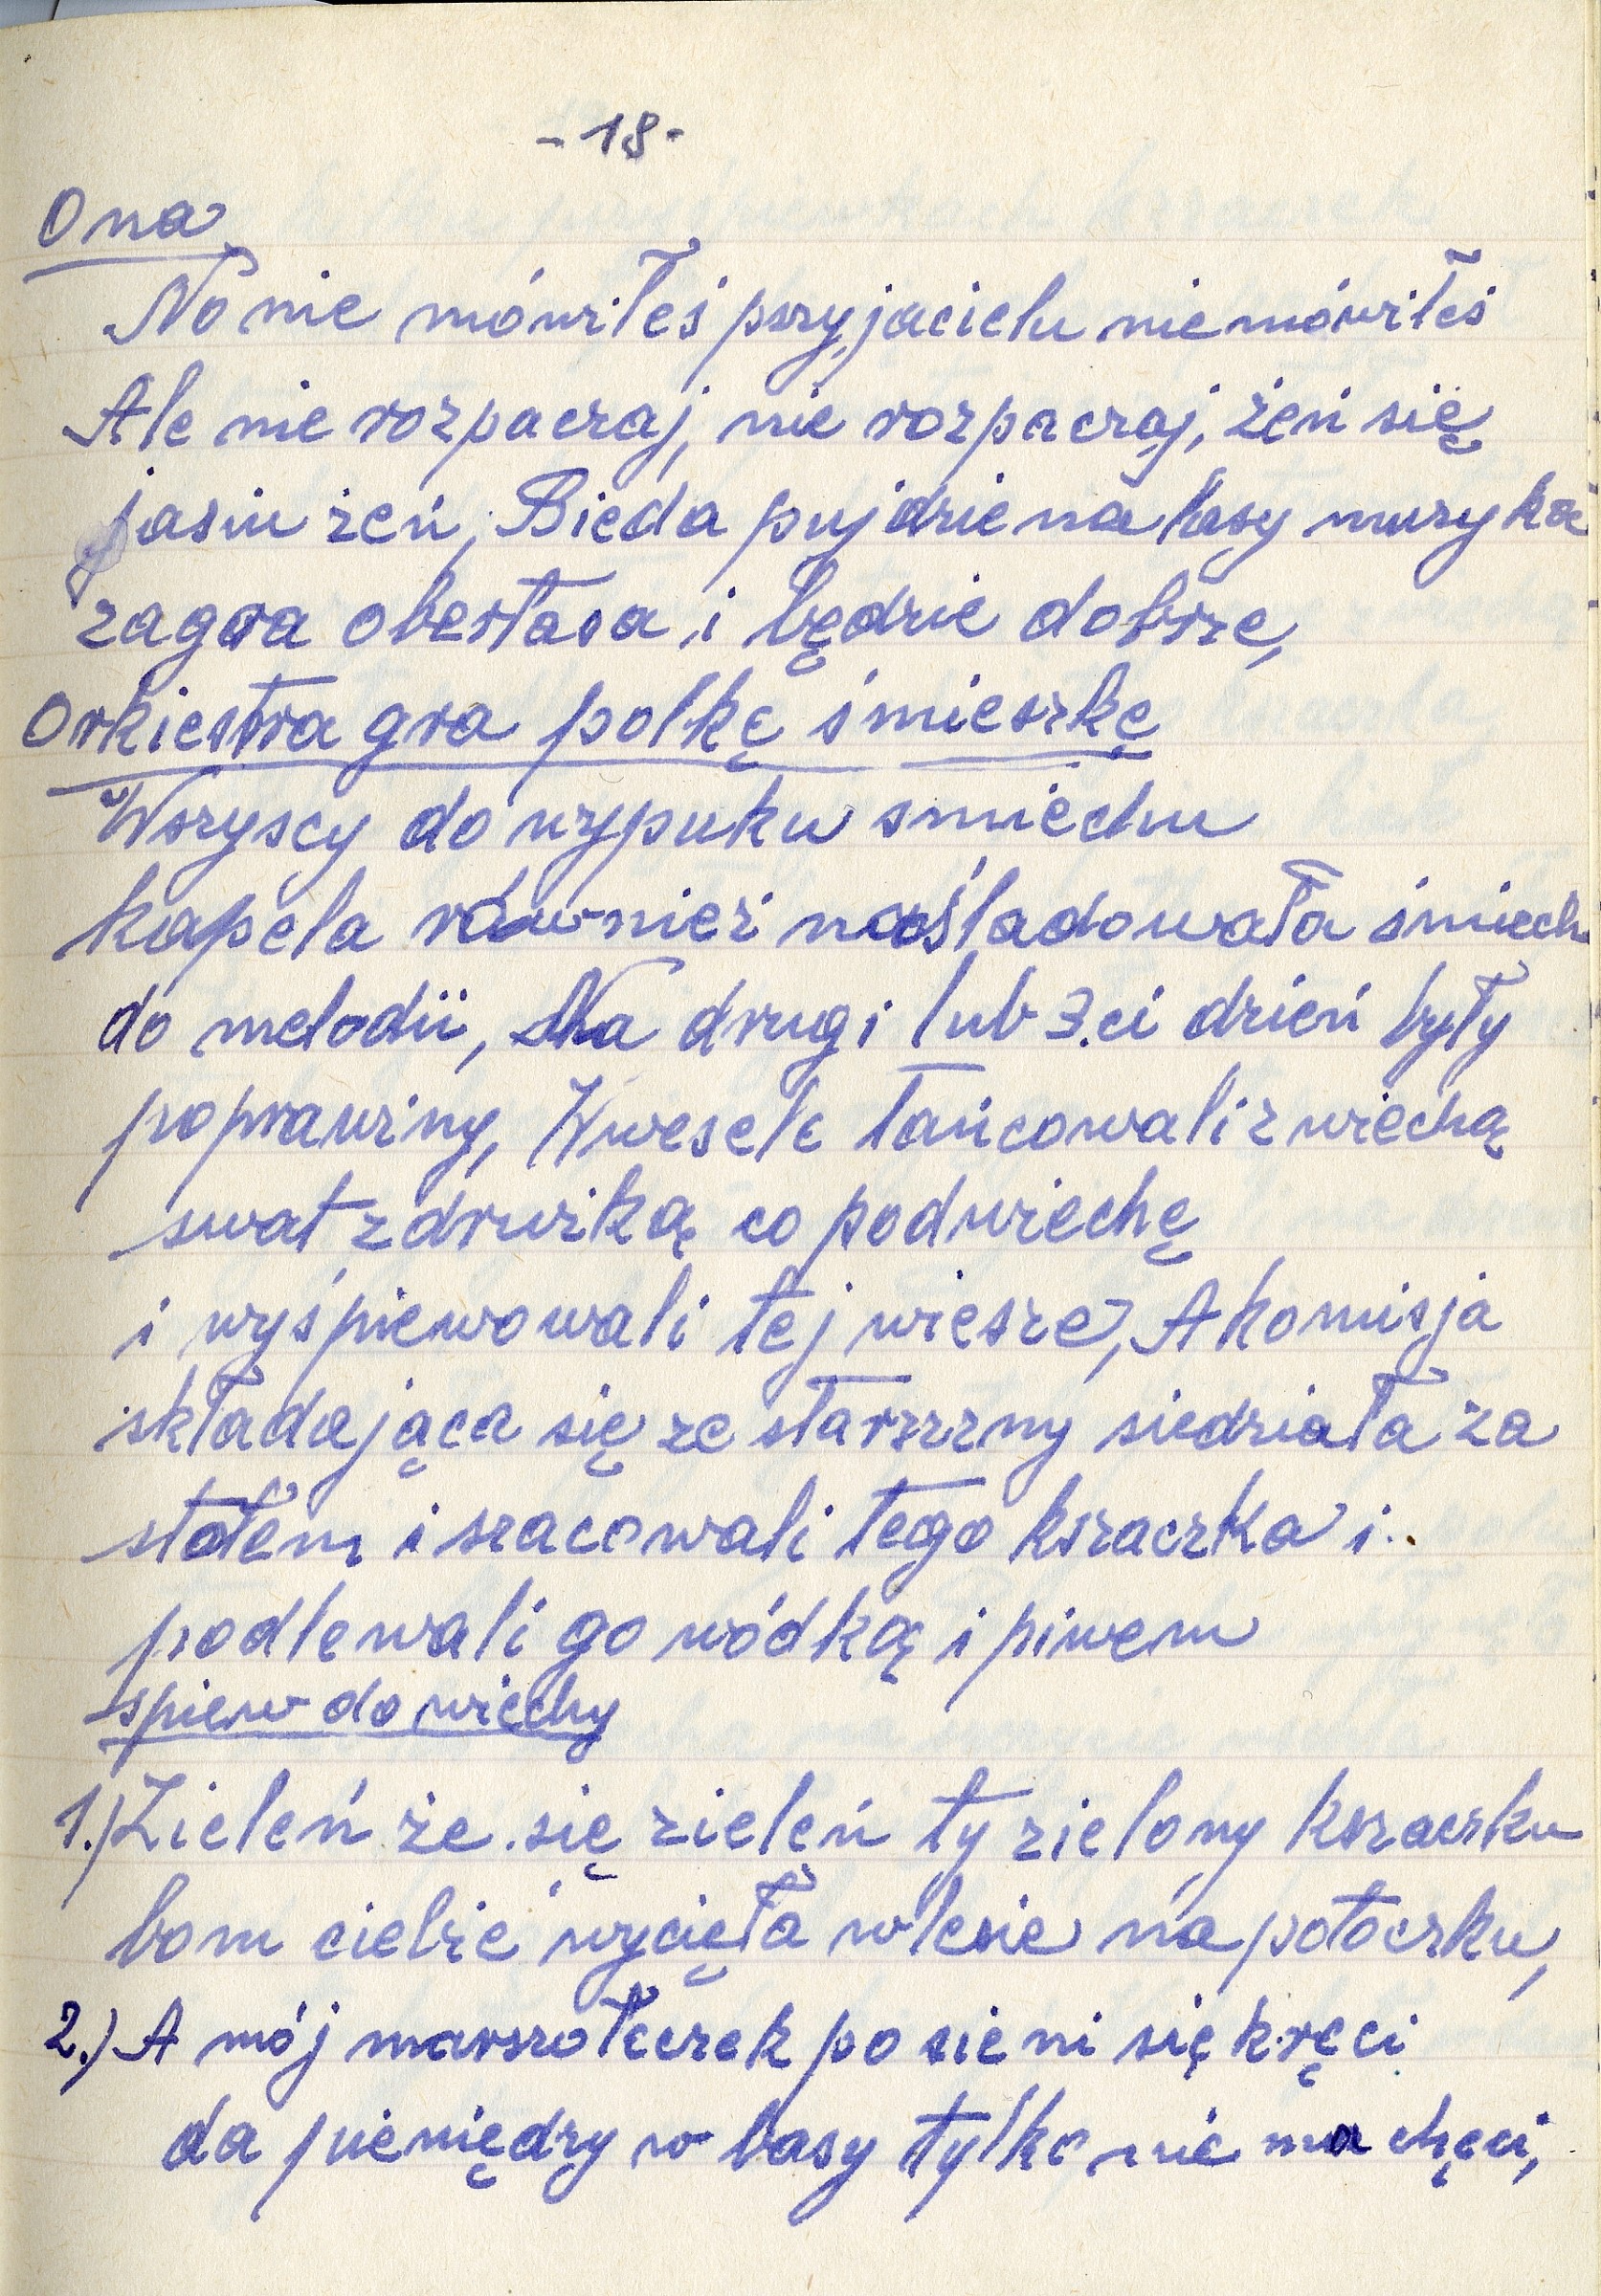 - 18 -
Ona
No nie mówiłeś pszyjacielu nie mówiłeś
Ale nie rozpaczaj, nie rozpaczaj, żeń się
jasiu żeń, Bieda pujdzie na lasy muzyka
zagra obertasa i będzie dobrze,
Orkiestra gra polkę śmieszkę
Wszyscy do wypuku smiechu
kapela również naśladowała śmiech
do melodii, Na drugi lub 3.ci dzień były
poprawiny, Wwesele tańcowali z wiechą
swat z drużką co podwiechę
i wyśpiewowali tej wiesze, A komisja
składająca się ze starzzzny siedziała za
stołem i szacowali tego kszaczka i
podlewali go wódką i piwem
spiew do wiechy
1.) Zieleń że się zieleń ty zielony kszaczku
bom ciebie wycięła w lesie na potoczku,
2.) A mój marszołeczek po sieni się kręci
da pieniędzy w basy tylko nie ma chęci,